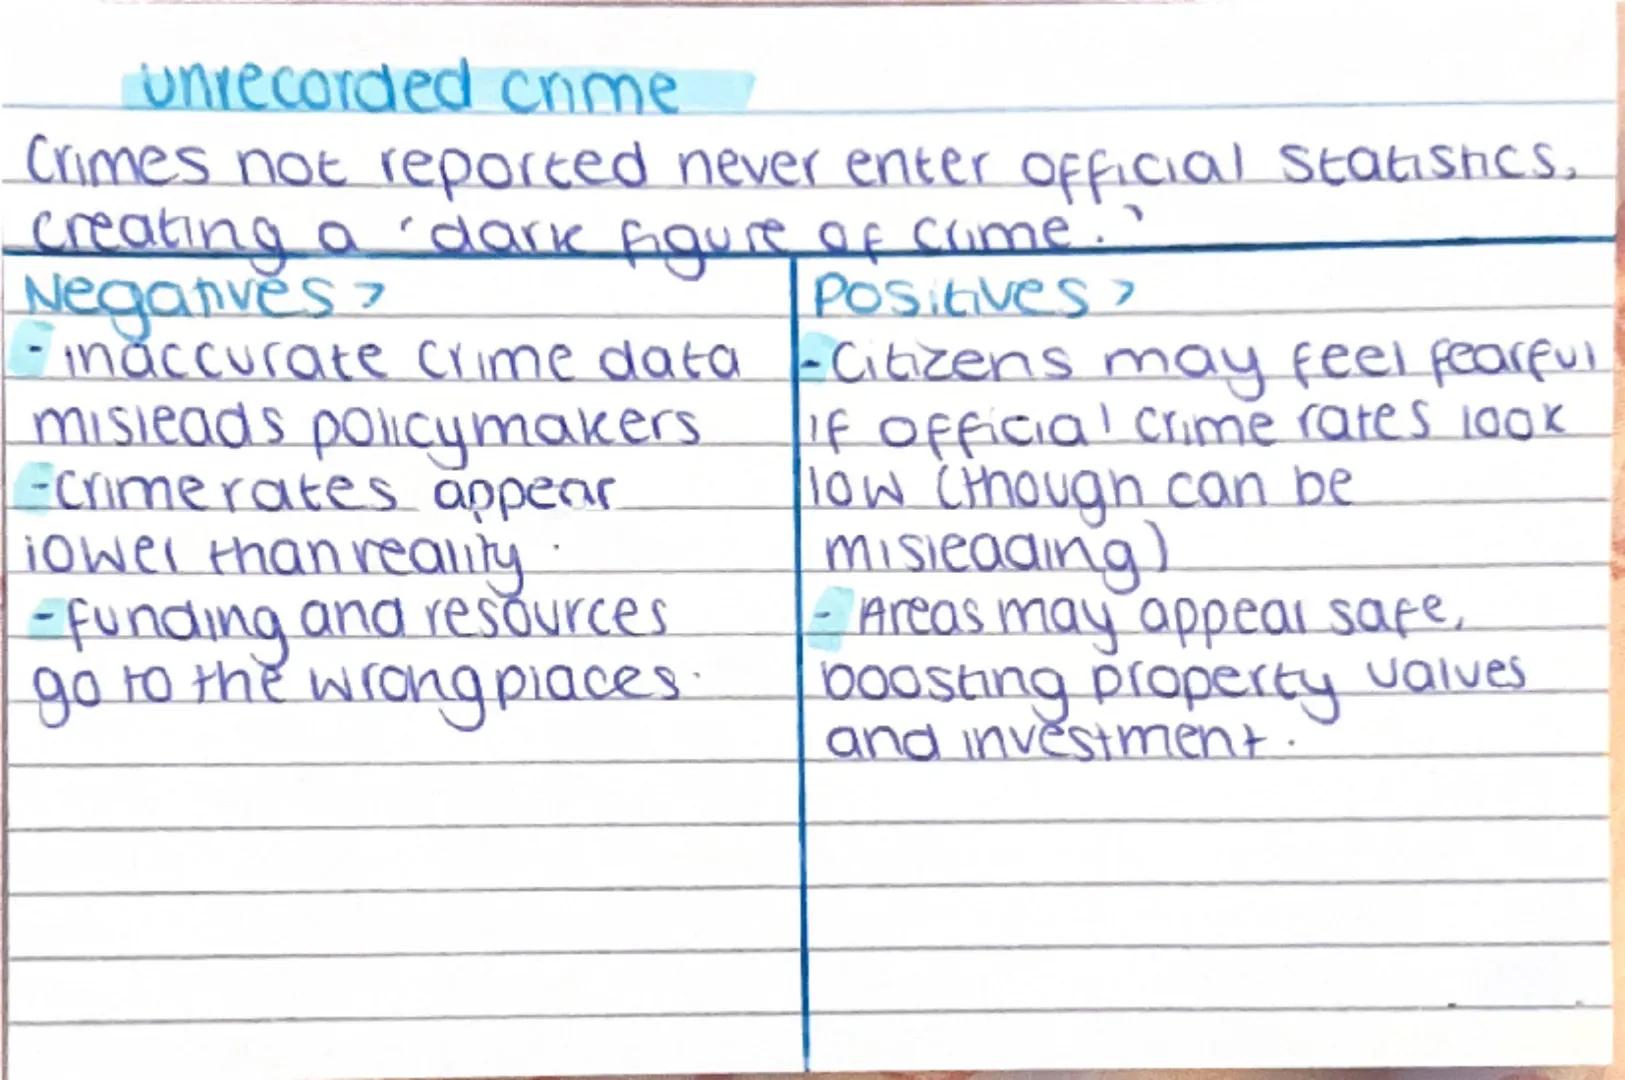 unrecorded crime
Crimes not reported never enter official statistics,
creating a 'dark figure of crime.'
Negatives >
- inaccurate crime data
misleads policymakers
- crime rates appear
lower than reality.
- funding and resources
go to the wrong places.
Positives >
- Citizens may feel fearful
if official crime rates look
low (though can be
misleading)
- Areas may appear safe,
boosting property values
and investment.